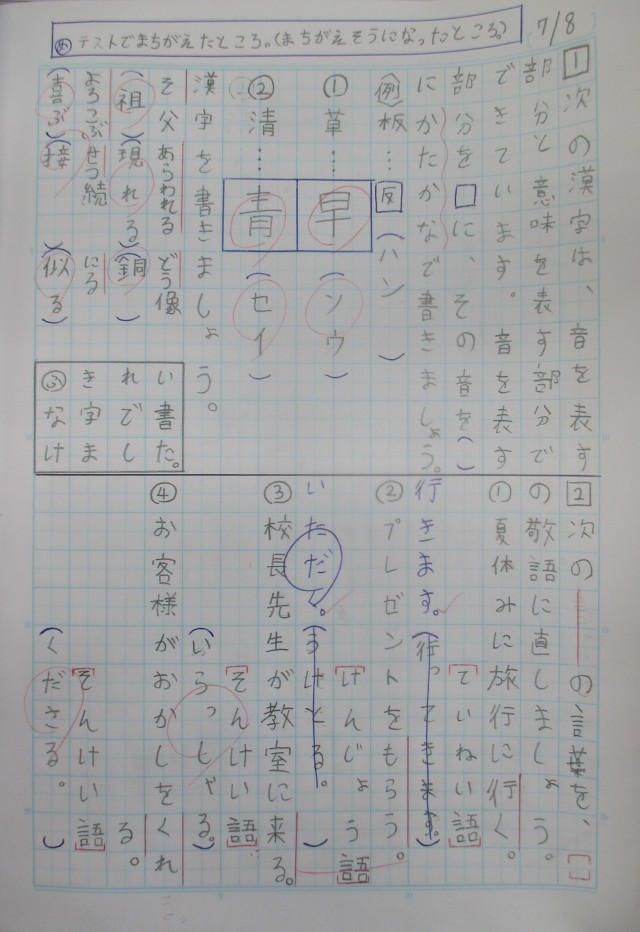 7/8
め テストでまちがえたところ。(まちがえそうになったところ。)
1 次の漢字は、音を表す
部分と意味を表す部分で
できています。音を表す
部分を□に、その音を( )
にかたかなで書きましょう。
(例)板…反(ハン)
①草…早(ソウ)
②清…青(セイ)
漢字を書きましょう。
そ父 あらわれる どう像
(祖)(現れる)(銅)
よろこぶ せつ続 にる
(喜ぶ)(接)(似る)
い書た。
れでし
き字ま
ふなけ
2 次の――の言葉を、[ ]
の敬語に直しましょう。
①夏休みに旅行に行く。
[ていねい語]
行きます。(行ってきます。)
②プレゼントをもらう。
[けんじょう語]
いただく。(うけとる。)
③校長先生が教室に来る。
[そんけい語]
(いらっしゃる。)
④お客様がおかしをくれ
る。
[そんけい語]
(くださる。)